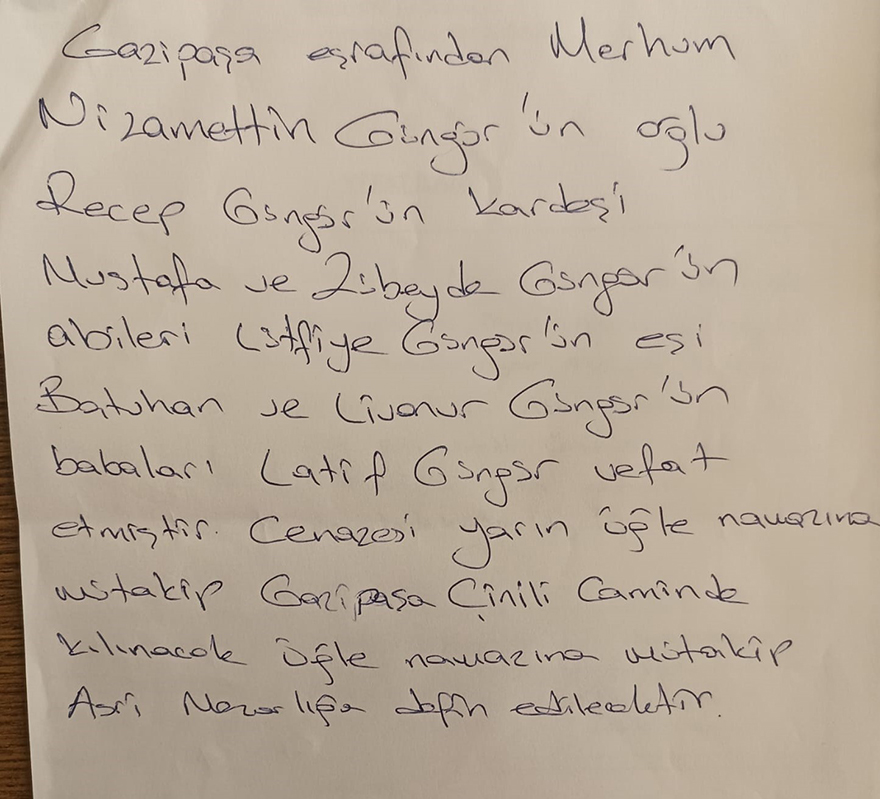 Gazipaşa eşrafından Merhum
Nizamettin Güngör'ün oğlu
Recep Güngör'ün kardeşi
Mustafa ve Zübeyde Güngör'ün
abileri Lütfiye Güngör'ün eşi
Batuhan ve Livanur Güngör'ün
babaları Latif Güngör vefat
etmiştir. Cenazesi yarın öğle namazına
mütakip Gazipaşa Çinili Caminde
kılınacak öğle namazına mütakip
Asri Mezarlığa defin edilecektir.